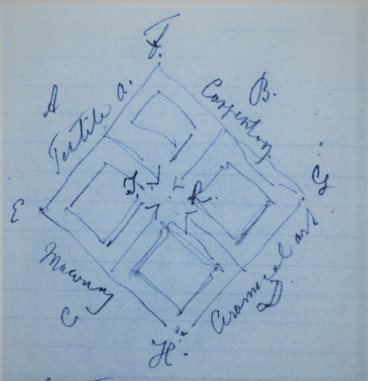 F.
A
Textile a.
B.
Carpentry
G
E
J.
R.
Masonry
C.
Ceramical art
D.
H.